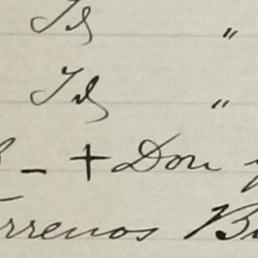 Id "
Id "
- + Don
rrenos